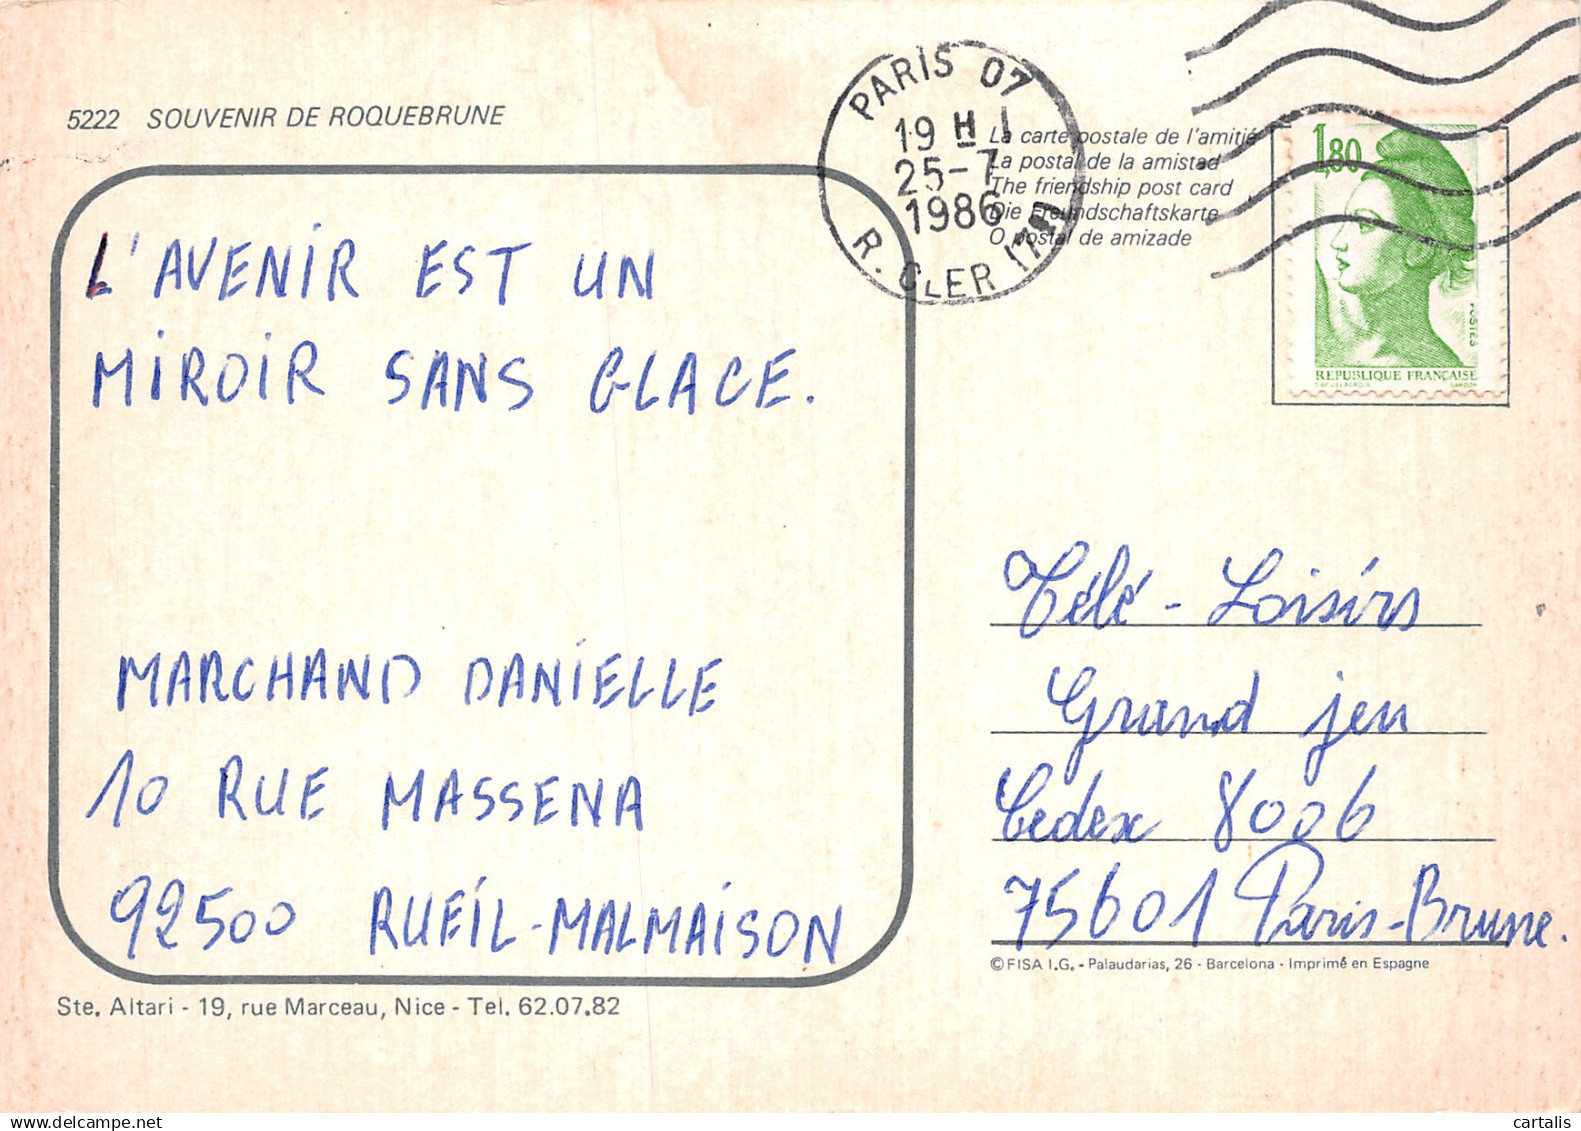 5222 SOUVENIR DE ROQUEBRUNE
PARIS 07
19 H
25-7
1986
R. CLER (7E)
La carte postale de l'amitié
La postal de la amistad
The friendship post card
Die Freundschaftskarte
O postal de amizade
1,80
POSTES
REPUBLIQUE FRANÇAISE
L'AVENIR EST UN
MIROIR SANS GLACE.
MARCHAND DANIELLE
10 RUE MASSENA
92500 RUEIL-MALMAISON
Télé-Loisirs
Grand jeu
Cedex 8006
75601 Paris-Brune.
© FISA I.G. - Palaudarias, 26 - Barcelona - Imprimé en Espagne
Ste. Altari - 19, rue Marceau, Nice - Tel. 62.07.82
cartalis